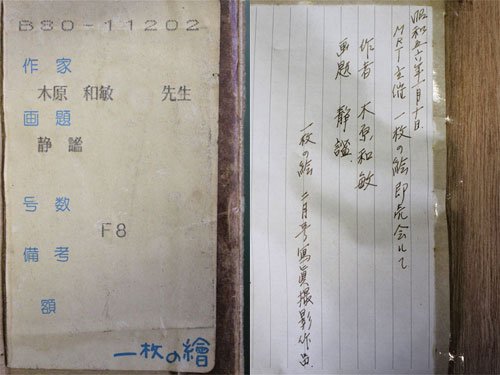 B80-11202
作家
木原 和敏 先生
画題
静謐
号数
F8
備考
額
一枚の繪
昭和五六年一月十日
MRT主催 一枚の絵即売会にて
作者 木原和敏
画題 静謐
一枚の絵 二月号写真撮影作品